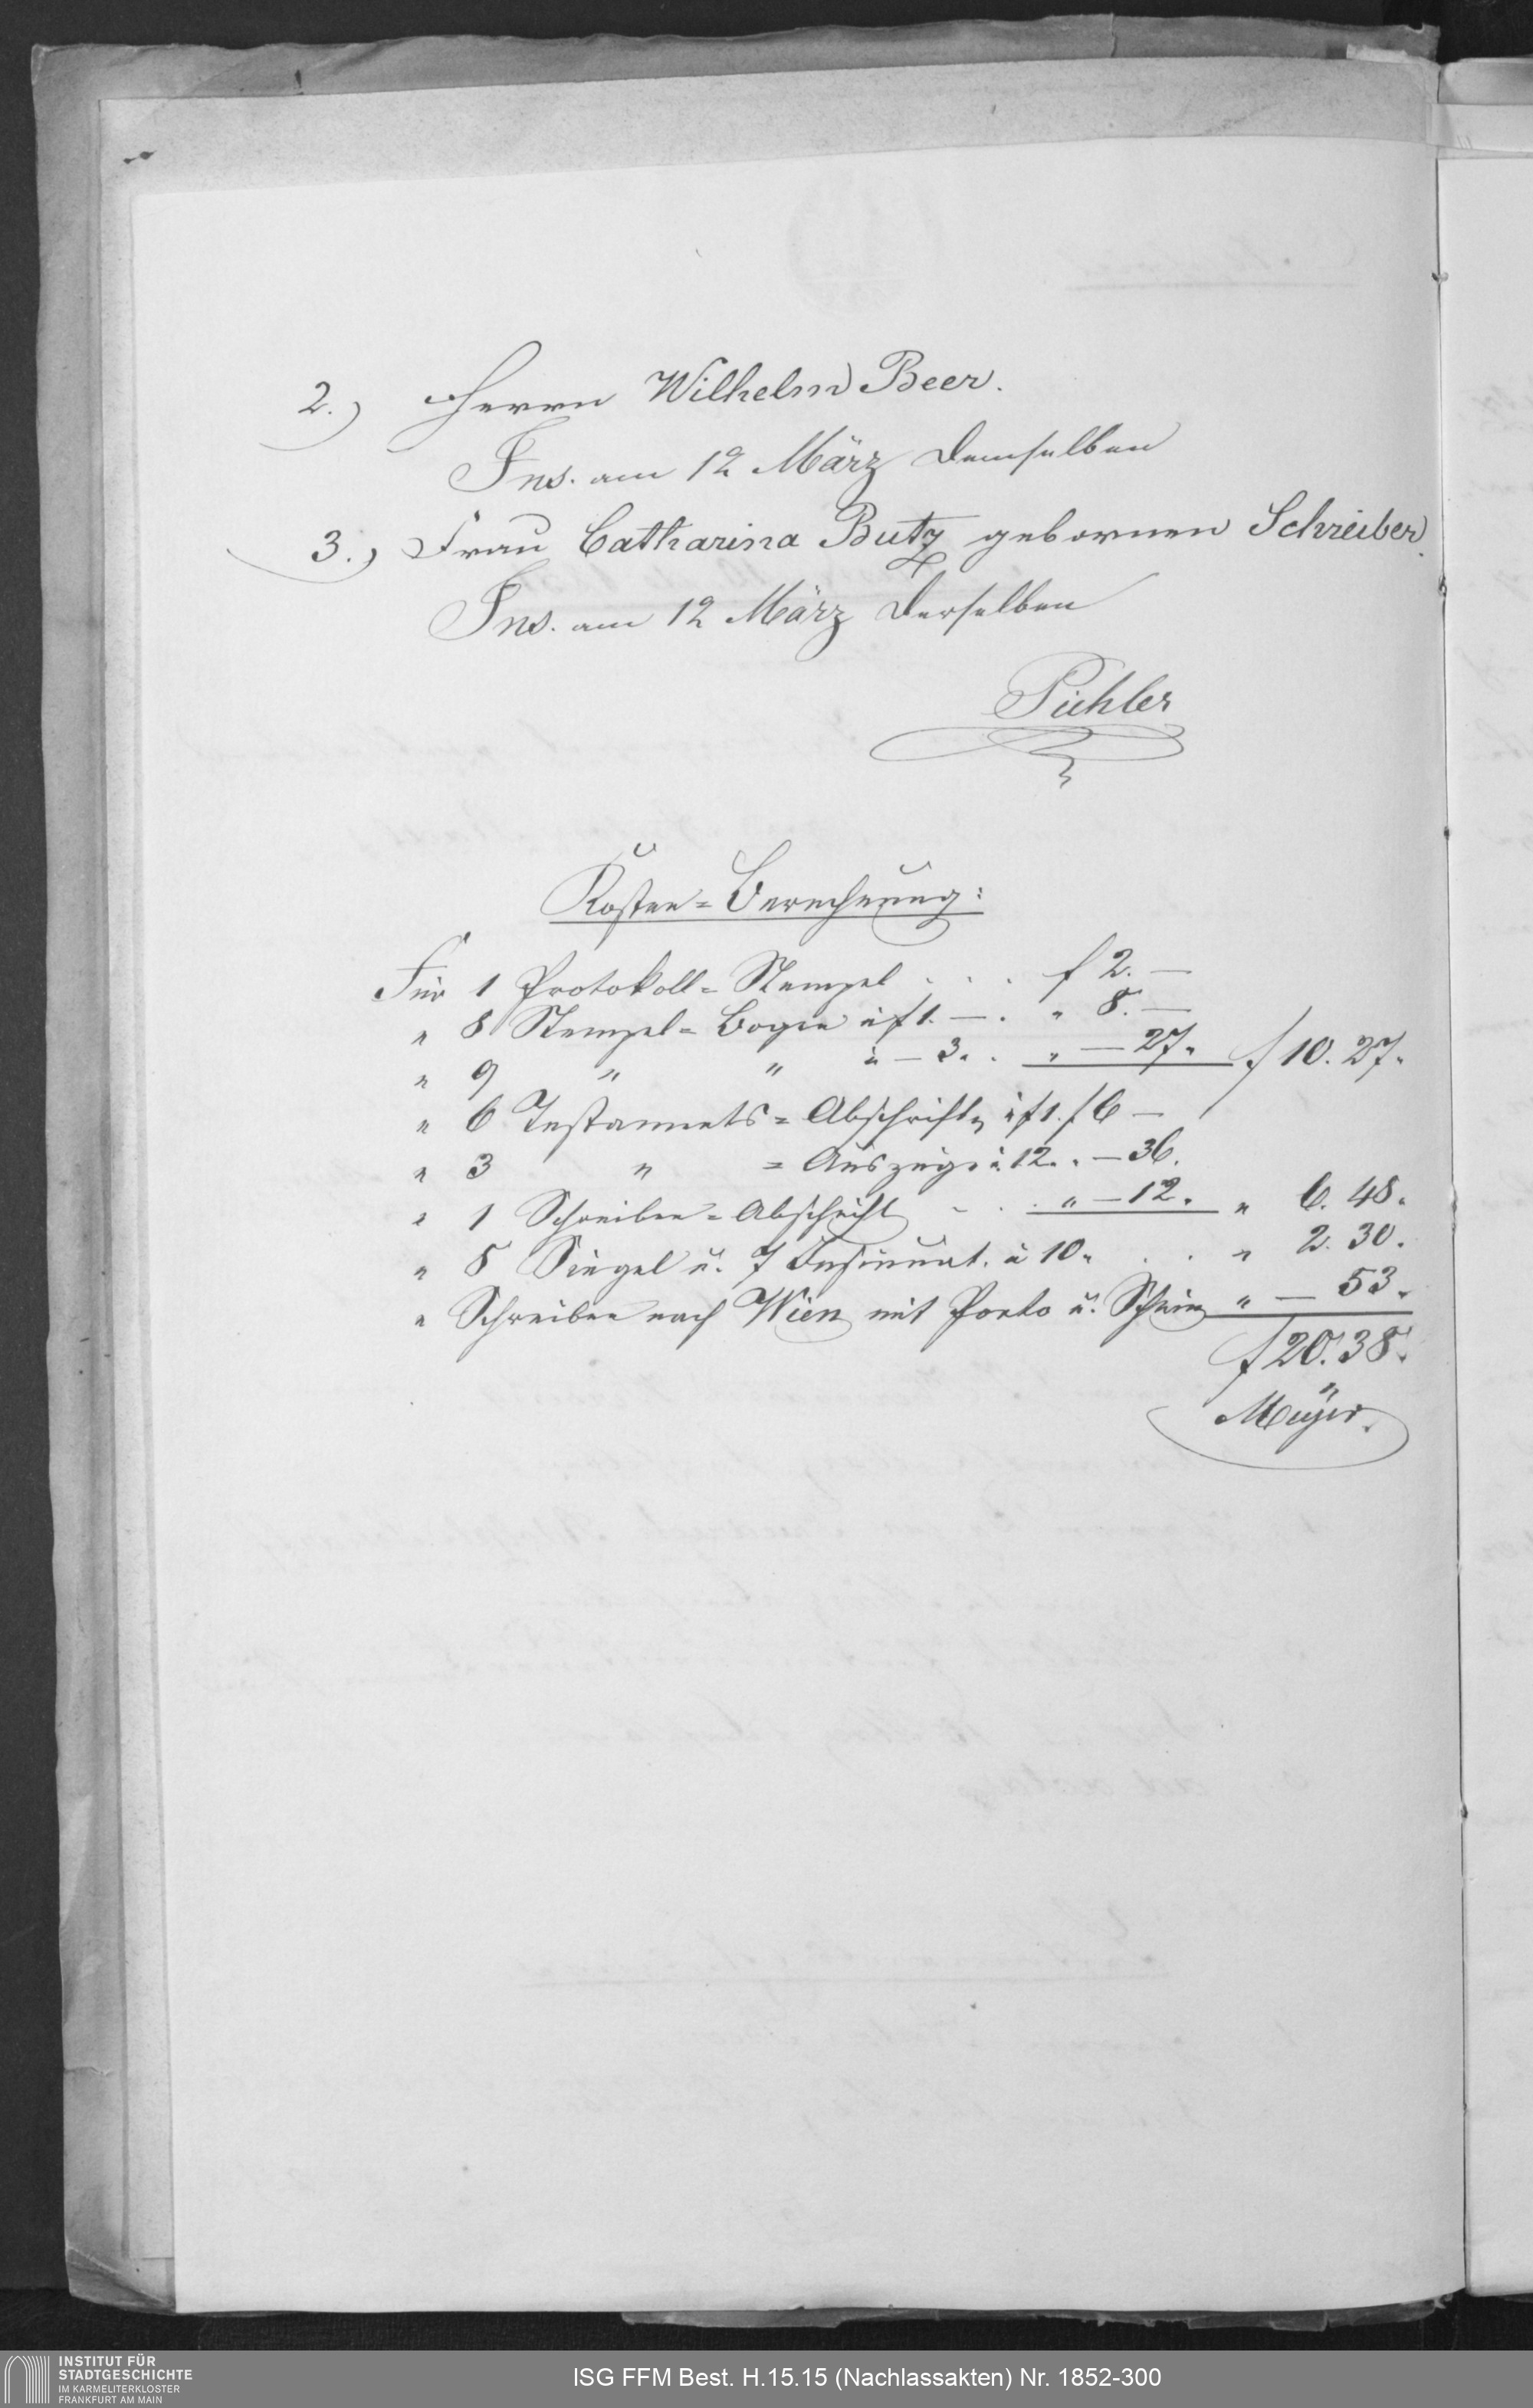 2.) Herrn Wilhelm Beer.
Ins. am 12 März demselben
3.) Frau Catharina Butz gebornen Schreiber.
Ins. am 12 März derselben
Pichler
Kosten-Berechnung:
Für 1 Protokoll-Stempel . . . f 2. —
" 8 Stempel-Bogen à f 1. — . " 8. —
" 9 " " à — 3. . " — 27. f 10. 27.
" 6 Testaments-Abschriften à f 1. f 6 —
" 3 " -Auszüge à 12. " — 36.
" 1 Schreiben-Abschrift . . . " — 12. " 6. 48.
" 8 Siegel u. 7 Insinuat. à 10. . . " 2. 30.
" Schreiben nach Wien mit Porto u. Schein " — 53.
f 20. 38.
INSTITUT FÜR
STADTGESCHICHTE
IM KARMELITERKLOSTER
FRANKFURT AM MAIN
ISG FFM Best. H.15.15 (Nachlassakten) Nr. 1852-300